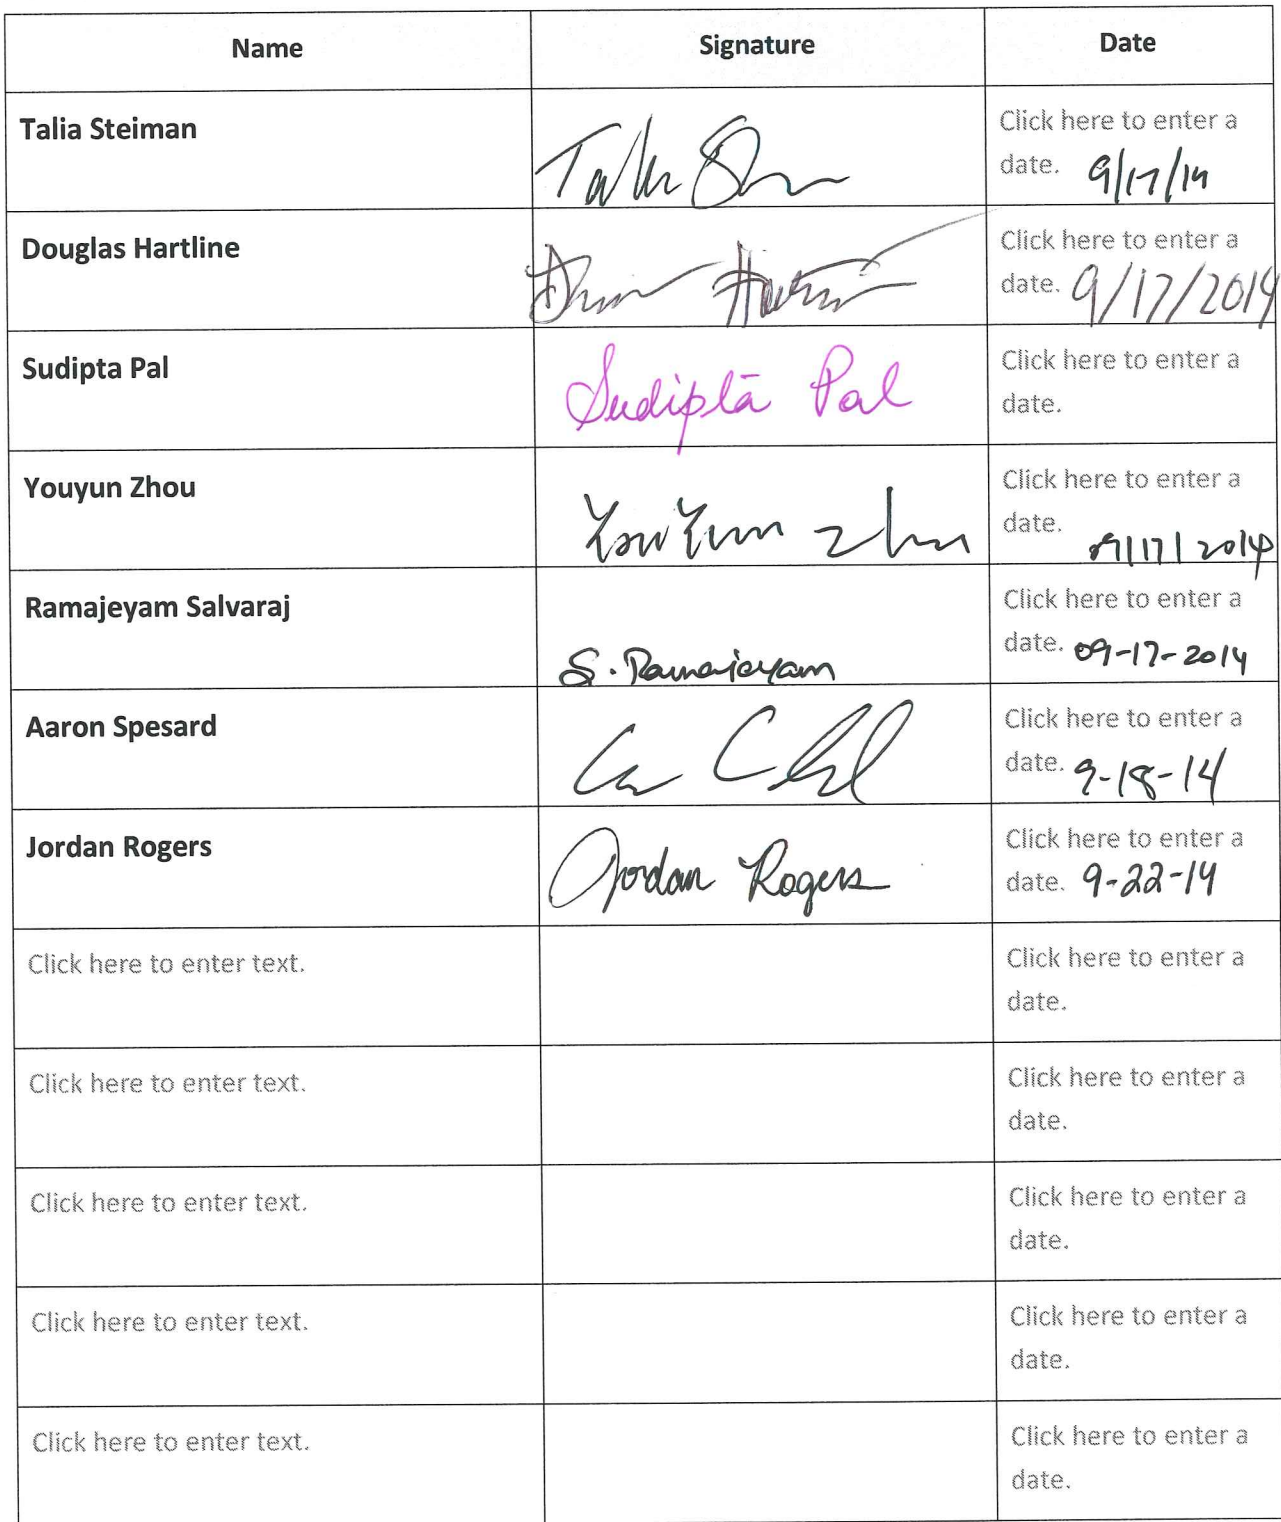 Name Signature Date
Talia Steiman Click here to enter a
date. 9/17/14
Douglas Hartline Click here to enter a
date. 9/17/2014
Sudipta Pal Sudipta Pal Click here to enter a
date.
Youyun Zhou YouYun Zhou Click here to enter a
date. 09/17/2014
Ramajeyam Salvaraj S. Ramajeyam Click here to enter a
date. 09-17-2014
Aaron Spesard Click here to enter a
date. 9-18-14
Jordan Rogers Jordan Rogers Click here to enter a
date. 9-22-14
Click here to enter text. Click here to enter a
date.
Click here to enter text. Click here to enter a
date.
Click here to enter text. Click here to enter a
date.
Click here to enter text. Click here to enter a
date.
Click here to enter text. Click here to enter a
date.